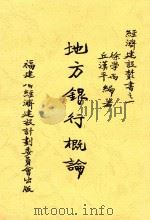 經濟建設叢書之一
徐學禹
丘漢平編著
地方銀行概論
福建省經濟建設計劃委員會出版